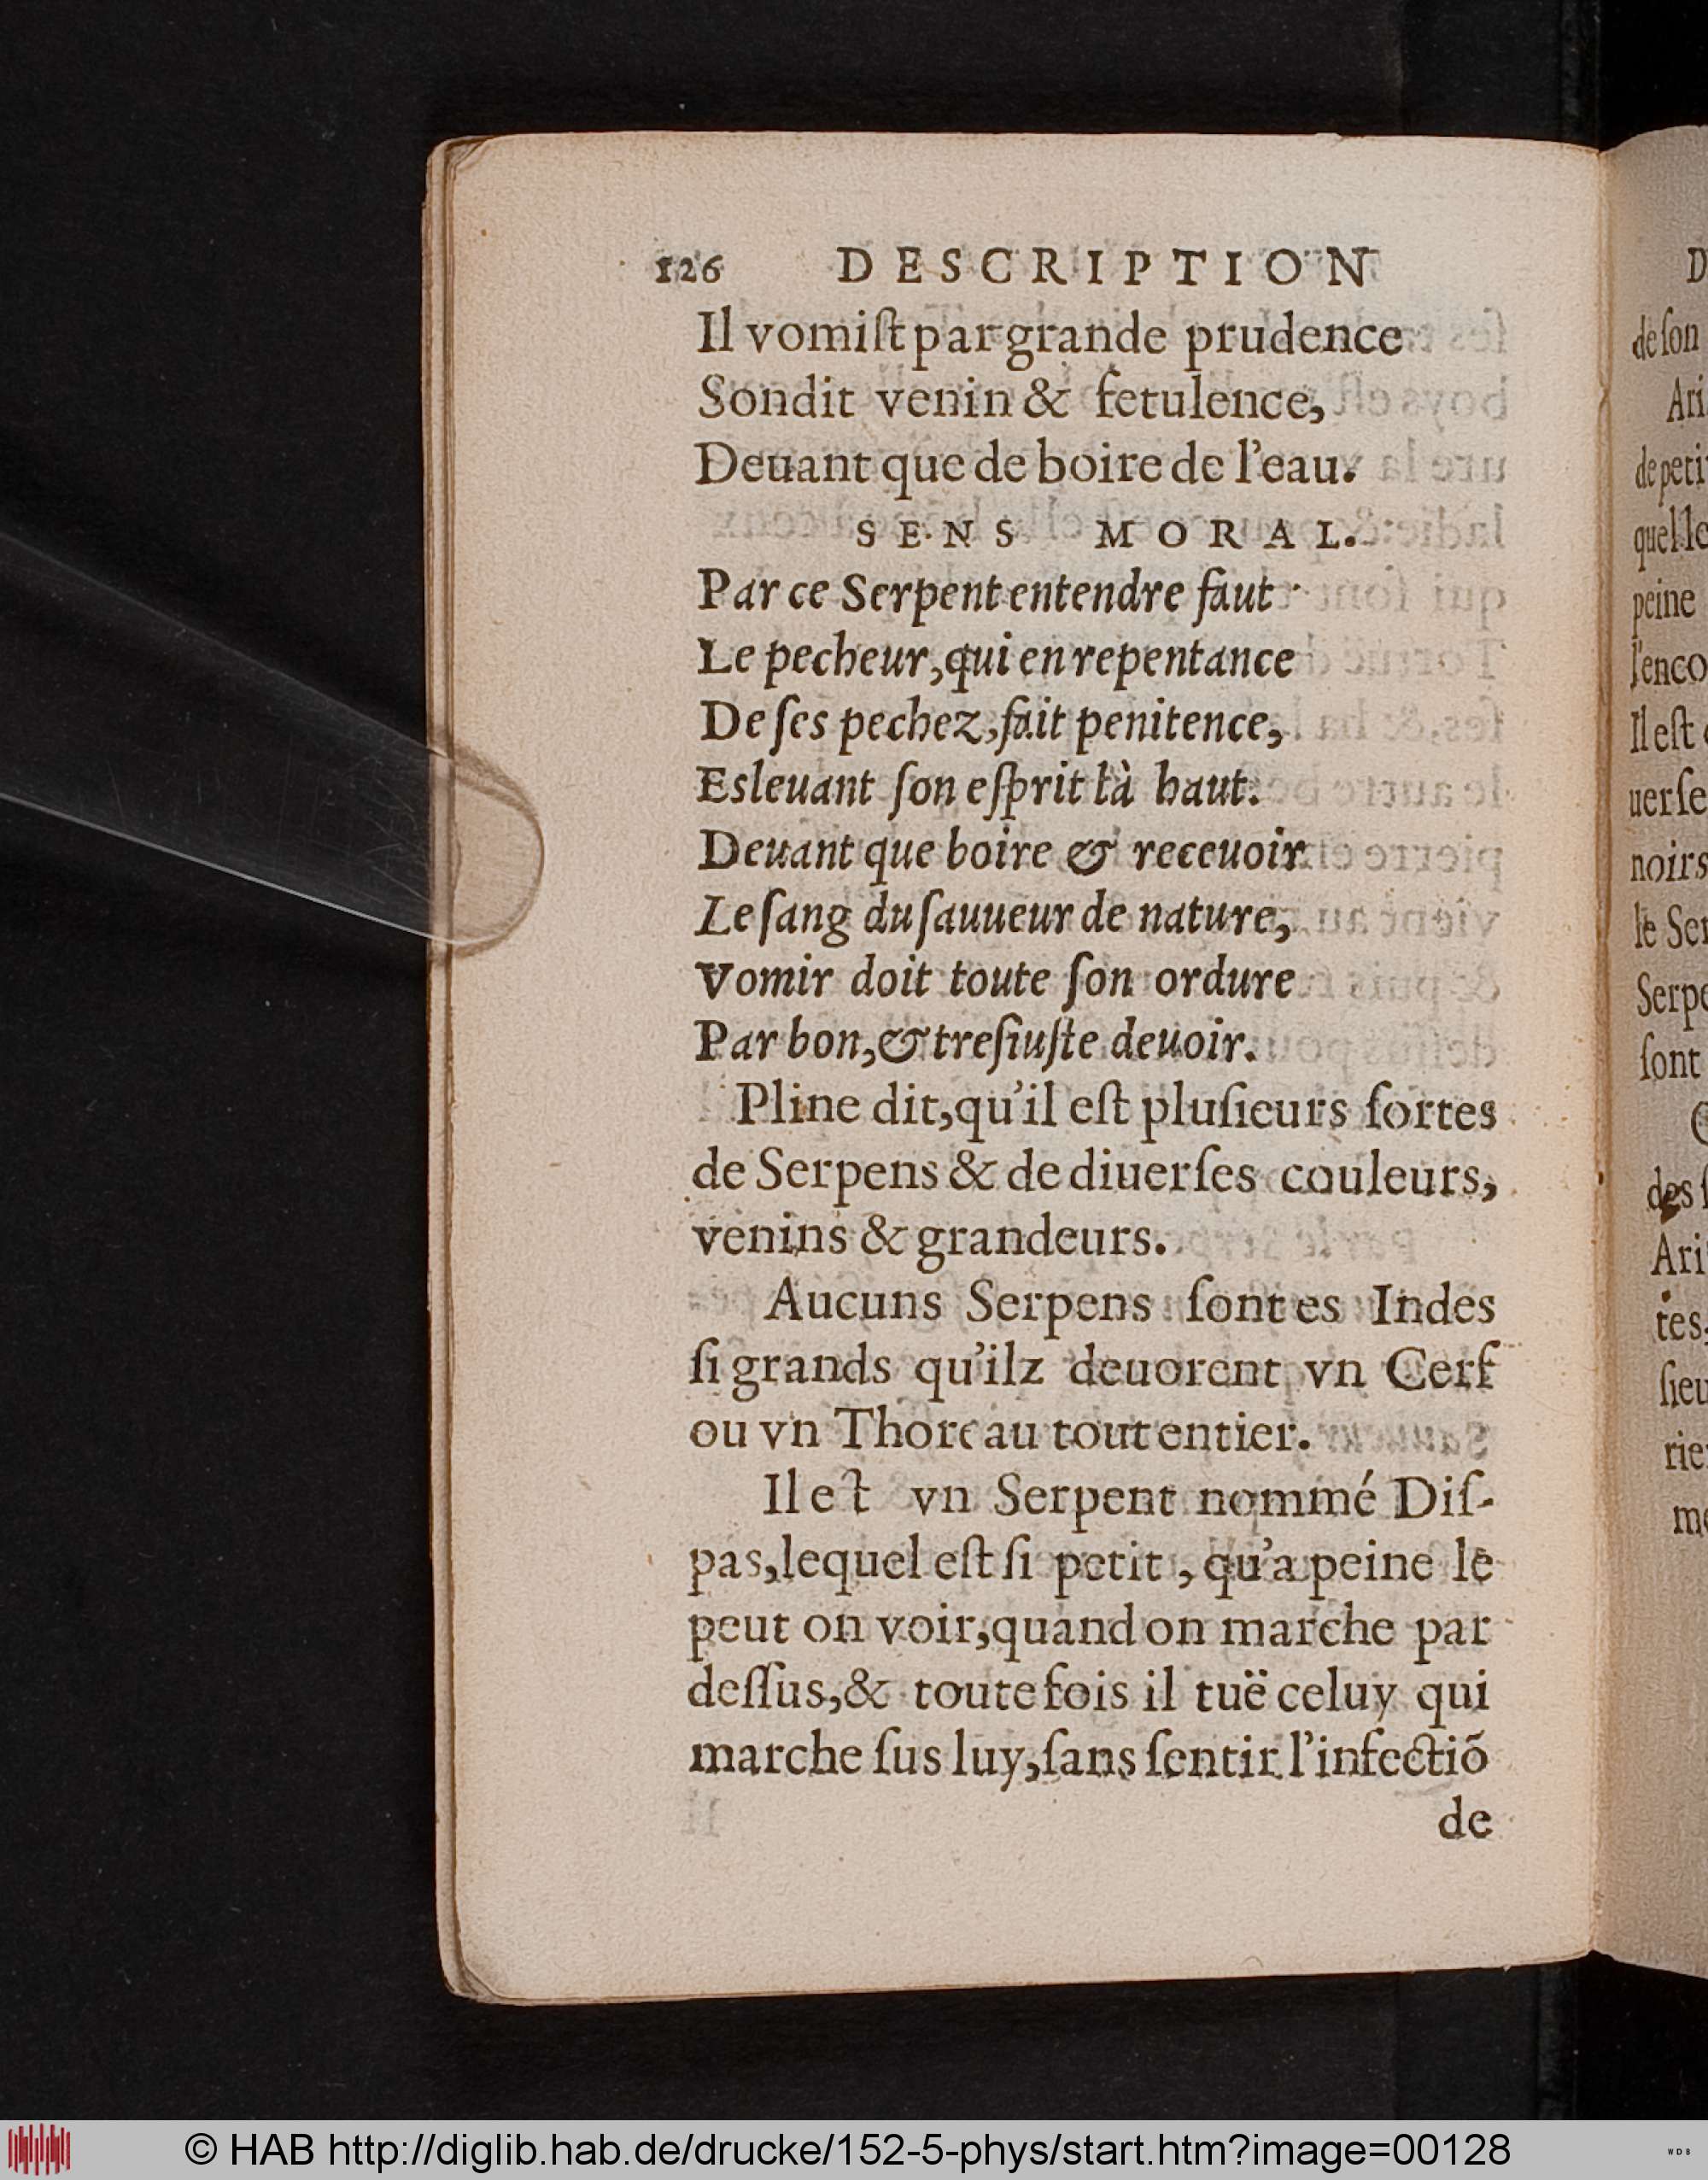 126 DESCRIPTION
Il vomiſt par grande prudence
Sondit venin & fetulence,
Deuant que de boire de l'eau.
SENS MORAL.
Par ce Serpent entendre faut
Le pecheur, qui en repentance
De ſes pechez, fait penitence,
Esleuant ſon eſprit là haut.
Deuant que boire & receuoir
Le ſang du ſauueur de nature,
Vomir doit toute ſon ordure
Par bon, & treſiuſte deuoir.
Pline dit, qu'il eſt pluſieurs ſortes
de Serpens & de diuerſes couleurs,
venins & grandeurs.
Aucuns Serpens ſont es Indes
ſi grands qu'ilz deuorent vn Cerf
ou vn Thoreau tout entier.
Il et vn Serpent nommé Diſ-
pas, lequel eſt ſi petit, qu'a peine le
peut on voir, quand on marche par
deſſus, & toutefois il tuë celuy qui
marche ſus luy, ſans ſentir l'infectiõ
de
D
de ſon
Ari
de peti
quel le
peine
l'enco
Il eſt
uerſe
noirs
le Ser
Serpe
ſont
des ſ
Ari
tes,
ſieu
rie
me
© HAB http://diglib.hab.de/drucke/152-5-phys/start.htm?image=00128
WDB